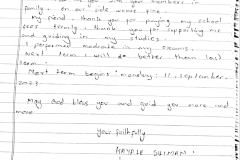 you with your members in
family. on our side we are fine.
My friend, thank you for paying my school
fees. family, thank you for supporting me
and guiding in my studies
I performed moderate in my exams.
Next term I will do better than last
term.
Next term begins monday, 11, september,
2023
May God bless you and guid you more and
more
your faithfully
KAYALE SULIMAN